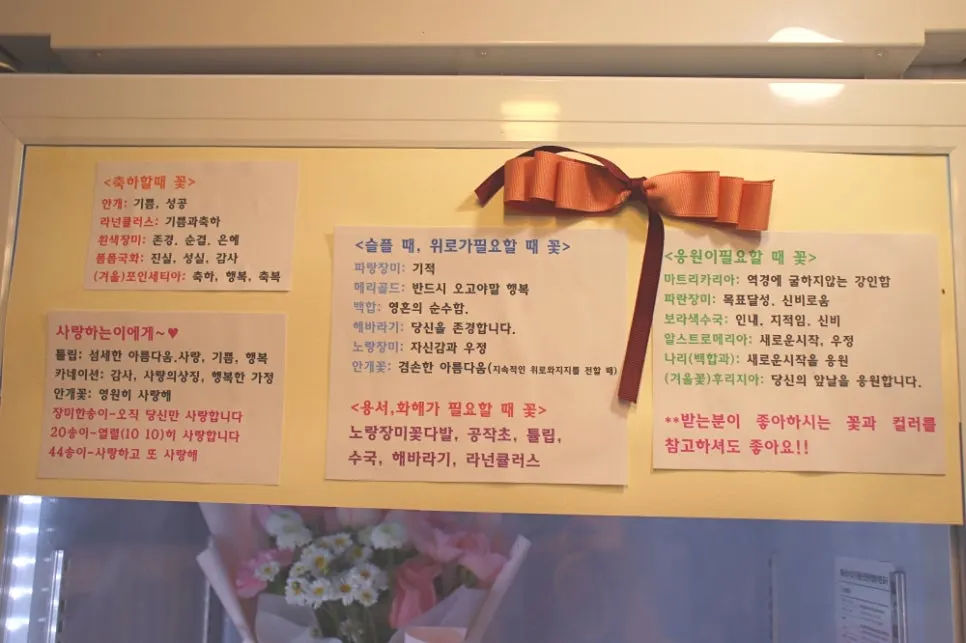 <축하할때 꽃>
안개: 기쁨, 성공
라넌큘러스: 기쁨과축하
흰색장미: 존경, 순결, 은혜
폼폼국화: 진실, 성실, 감사
(겨울)포인세티아: 축하, 행복, 축복
사랑하는이에게~♥
튤립: 섬세한 아름다움,사랑, 기쁨, 행복
카네이션: 감사, 사랑의상징, 행복한 가정
안개꽃: 영원히 사랑해
장미한송이-오직 당신만 사랑합니다
20송이-열렬(10 10)히 사랑합니다
44송이-사랑하고 또 사랑해
<슬플 때, 위로가필요할 때 꽃>
파랑장미: 기적
메리골드: 반드시 오고야말 행복
백합: 영혼의 순수함.
해바라기: 당신을 존경합니다.
노랑장미: 자신감과 우정
안개꽃: 겸손한 아름다움(지속적인 위로와지지를 전할 때)
<용서,화해가 필요할 때 꽃>
노랑장미꽃다발, 공작초, 튤립,
수국, 해바라기, 라넌큘러스
<응원이필요할 때 꽃>
마트리카리아: 역경에 굴하지않는 강인함
파란장미: 목표달성, 신비로움
보라색수국: 인내, 지적임, 신비
알스트로메리아: 새로운시작, 우정
나리(백합과): 새로운시작을 응원
(겨울꽃)후리지아: 당신의 앞날을 응원합니다.
**받는분이 좋아하시는 꽃과 컬러를
참고하셔도 좋아요!!